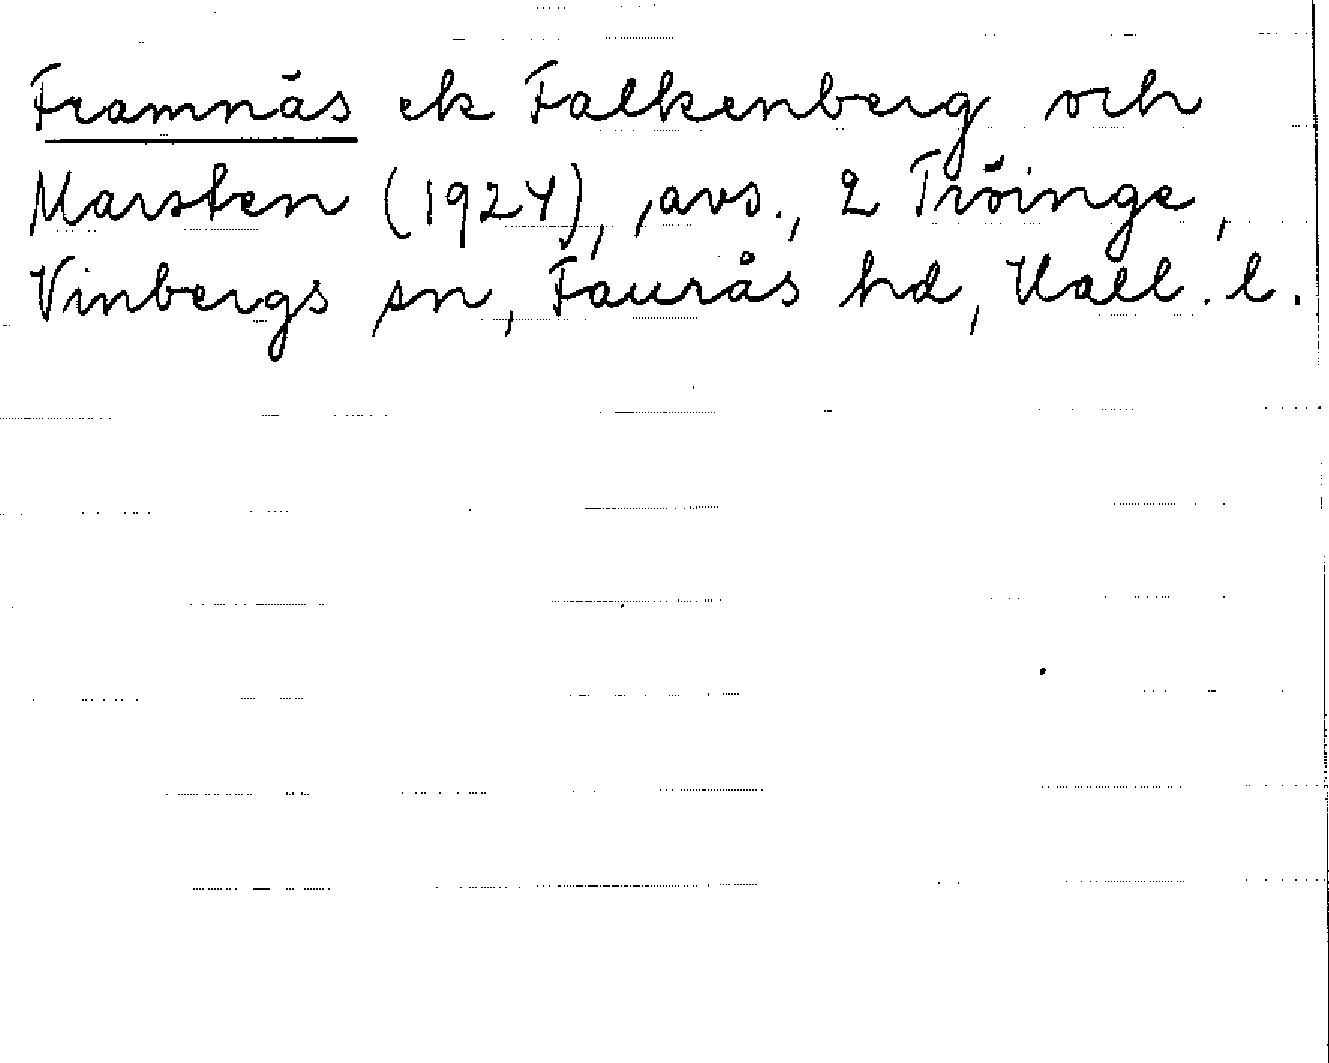 Framnäs ek Falkenberg och
Marsten (1924), avs., 2 Tröinge,
Vinbergs sn, Faurås hd, Hall. l.